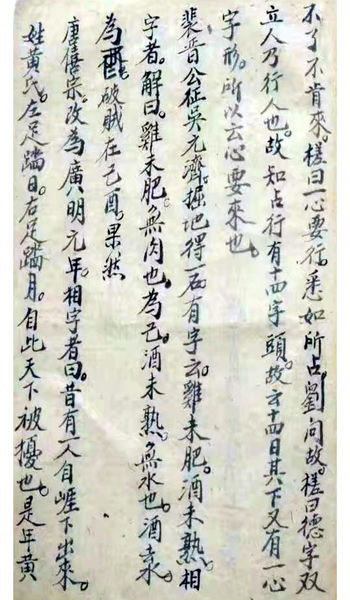 不了不肯來。槎曰一心要行。悉如所占。劉问故。槎曰德字双
立人乃行人也。故知占行有十四字頭。故言十四日其下又有一心
字形。所以云心要來也。
裴晋公征吳元濟。掘地得一石有字云。雞未肥。酒未熟。相
字者。解曰。雞未肥。無肉也。為己。酒未熟。無水也。酒去水
為酉。破賊在己酉。果然
唐僖宗。改為廣明元年。相字者曰。昔有一人自崖下出來。
姓黃氏。左足踏日。右足踏月。自此天下被擾也。是年黃